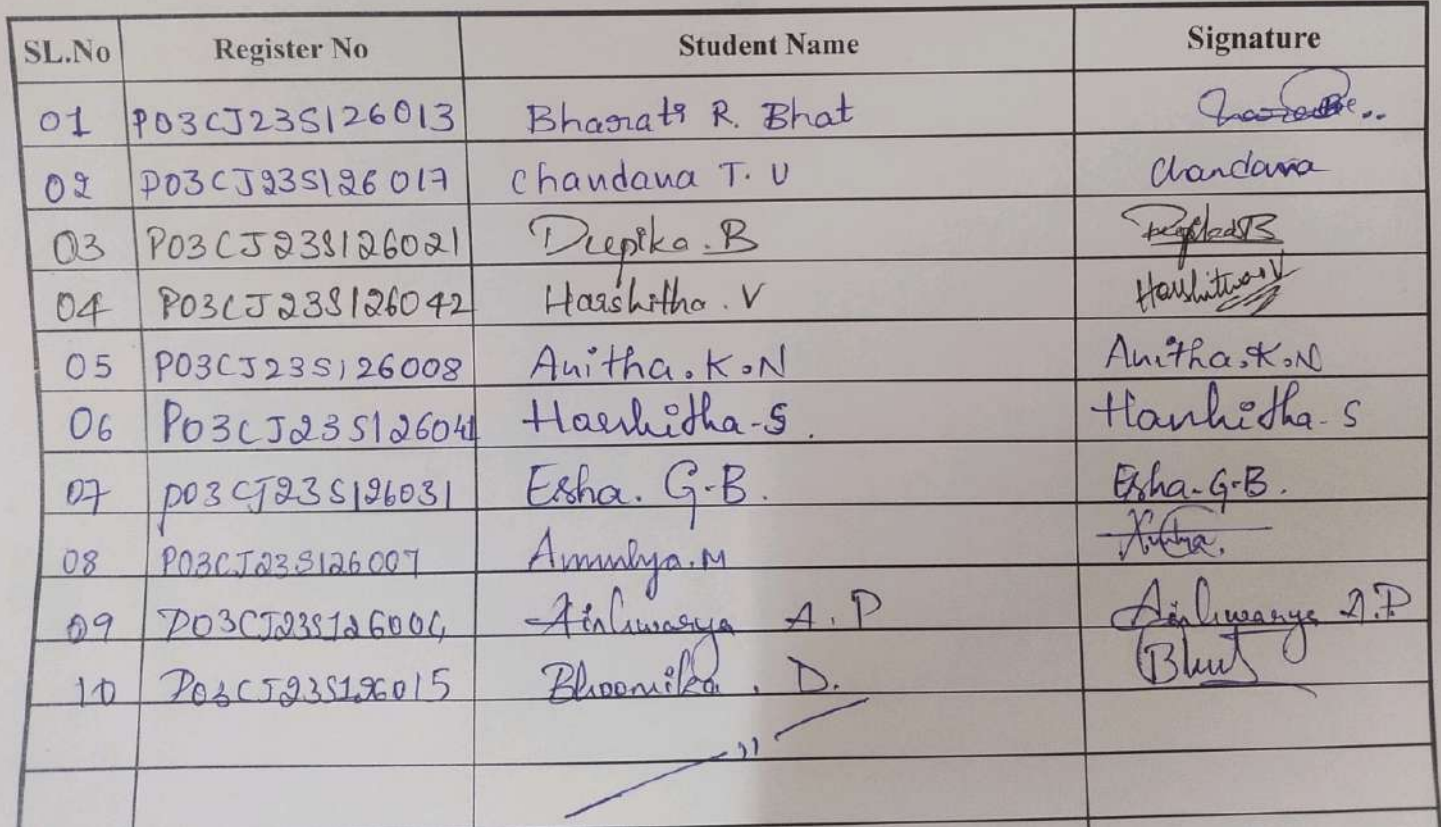 SL.No Register No Student Name Signature
01 P03CJ23S126013 Bharati R. Bhat
02 P03CJ23S126017 Chandana T. U Chandana
03 P03CJ23S126021 Deepika . B Deepika B
04 P03CJ23S126042 Harshitha . V Harshitha V
05 P03CJ23S126008 Anitha . K . N Anitha . K . N
06 P03CJ23S126041 Harshitha - S . Harshitha - S
07 P03CJ23S126031 Esha . G - B . Esha - G - B .
08 P03CJ23S126007 Amulya . M
09 P03CJ23S126004 Aishwarya A . P Aishwarya A . P
10 P03CJ23S126015 Bhoomika . D .